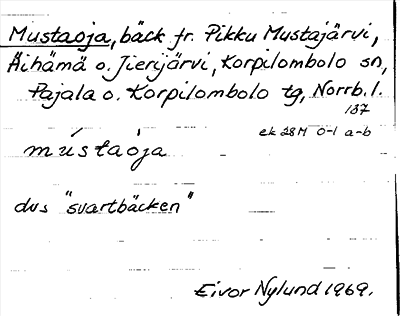 Mustaoja, bäck fr. Pikku Mustajärvi,
Äihämä o. Jierijärvi, Korpilombolo sn,
Pajala o. Korpilombolo tg, Norrb. l.
137
ek 28M 0-1 a-b
mústaòja
dvs "svartbäcken"
Eivor Nylund 1969.